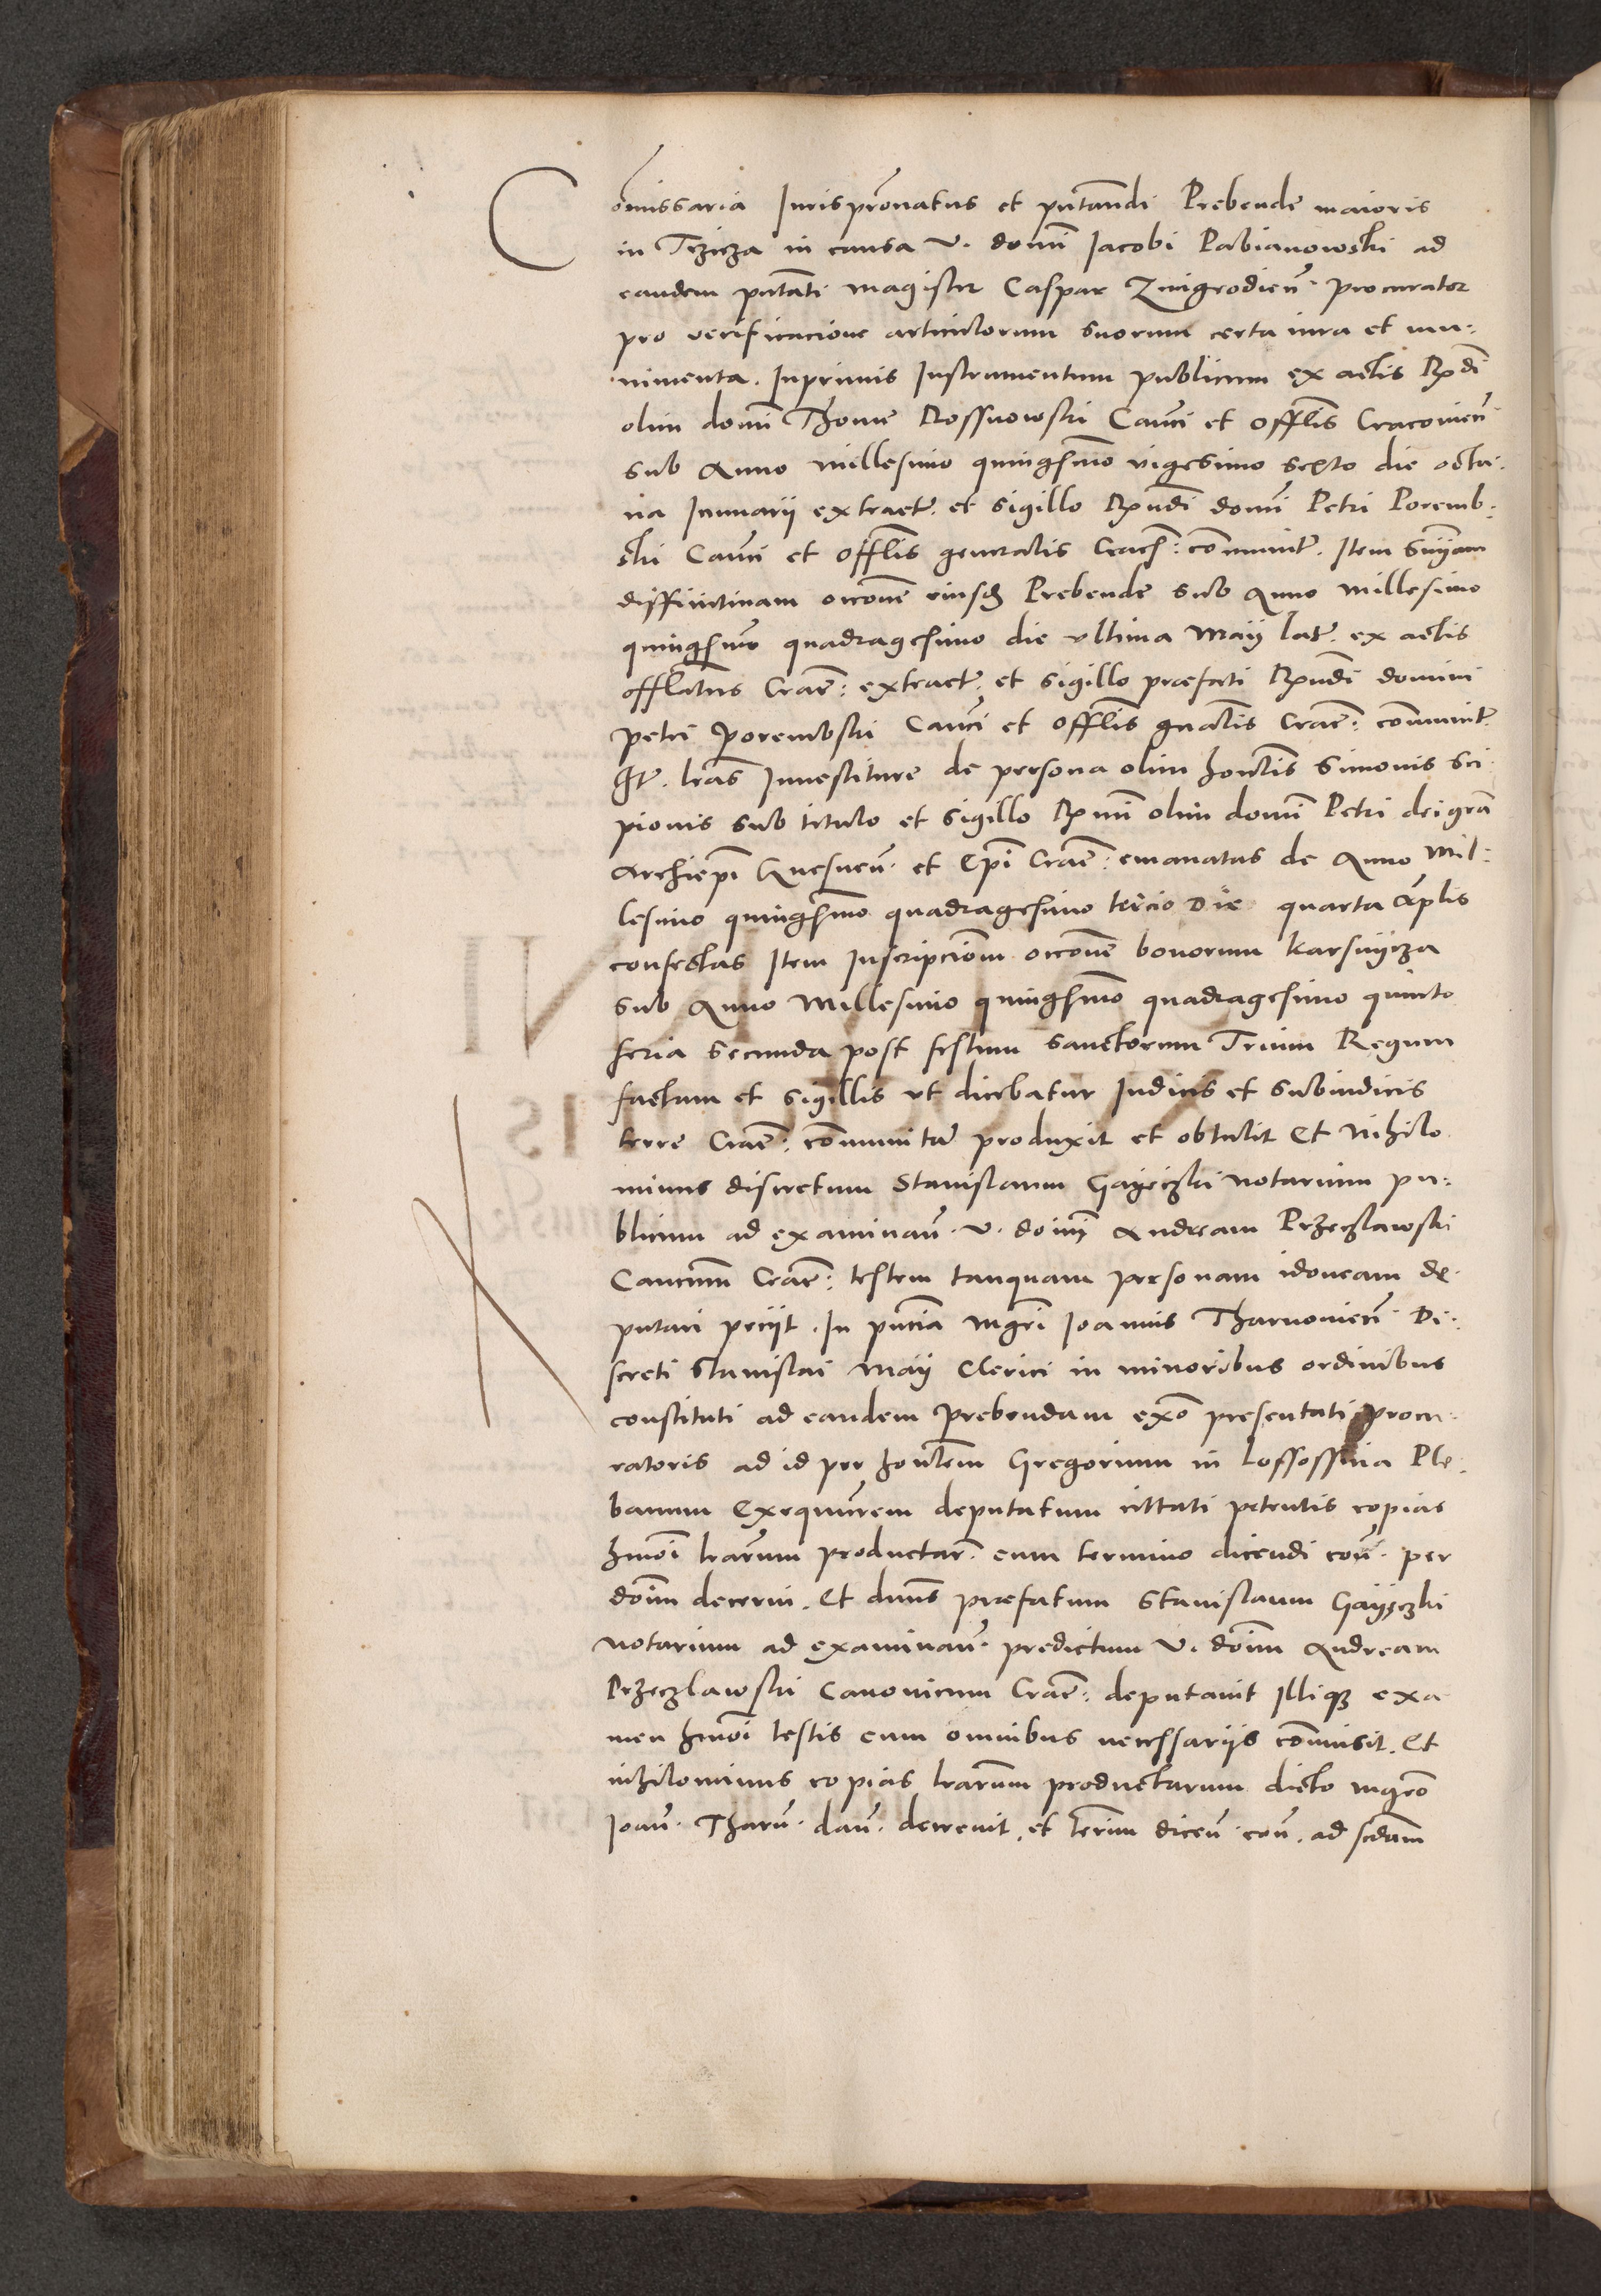 Com̄issaria Jurisp̄ronatus et pn̄tandi Prebende maioris
in Trzicza in causa v. domi Iacobi Pabianowski ad
eandem pn̄tati magister Caspar Zmigrodien̄ procurator
pro verificacione articulorum suorum certa iura et mu-
nimenta. Inprimis Instrumentum publicum ex actis Rn̄di
olim domi Thome Rossnowski Can̄ci et Offlis Cracovien̄
sub Anno millesimo quingesmo vigesimo sexto die octa-
va Januarii extract. et sigillo Rn̄di domi Petri Poremb-
ski Can̄ci et Offlis generalis Crac: com̄unit. Item sn̄iam
diffinitivam occone eiusd Prebende sub Anno millesimo
quingesmo quadragesimo die vltima Maij lat. ex actis
offlatus Crac: extract. et sigillo præfati Rn̄di domini
Petri Porembski Can̄ci et Offlis gnalis Crac: com̄unit.
It. l̄ras Investiture de persona olim hon̄lis Simonis Sci-
pionis sub titulo et sigillo Rmi olim domi Petri dei gr̄a
Archiepi Gnesnen̄ et Epi Crac: emanatas de Anno Mil-
lesimo quingesmo quadragesimo tercio Die quarta Ap̄lis
confectas Item Inscripcionem occone bonorum Karsnycza
sub Anno Millesimo quingesmo quadragesimo quinto
feria secunda post festum sanctorum Trium Regum
factam et sigillis vt dicebatur Iudicis et Subiudicis
terre Crac: com̄unitam produxit et obtulit Et Nihilo
minus discretum Stanislaum Gayeczki notarium pu-
blicum ad examinan̄. v. domi Andream Przeczlawski
Canonicum Crac: testem tanquam personam idoneam de-
putari peciit. In pn̄cia mgri Ioannis Tharnovien̄ Di-
screti Stanislai Maij Clerici in minoribus ordinibus
constituti ad eandem prebendam ex̄o presentati procu-
ratoris ad id per hon̄lem Gregorium in Lossossina Ple-
banum Exequutorem deputatum citati petentis copias
hmoi l̄rarum productar. cum termino dicendi con̄. per
don̄m decerni. Et dn̄us præfatum Stanislaum Gayeczki
notarium ad examinan̄. predictum V. don̄m Andream
Przeczlawski Canonicum Crac: deputavit Illique exa
men hmoi testis cum omnibus necessariis com̄isit. Et
nihilominus copias l̄rarum productarum dicto mgro
Ioan̄. Tharn̄. dan̄. decrevit. et ter̄im dicen̄. con̄. ad sc̄dam